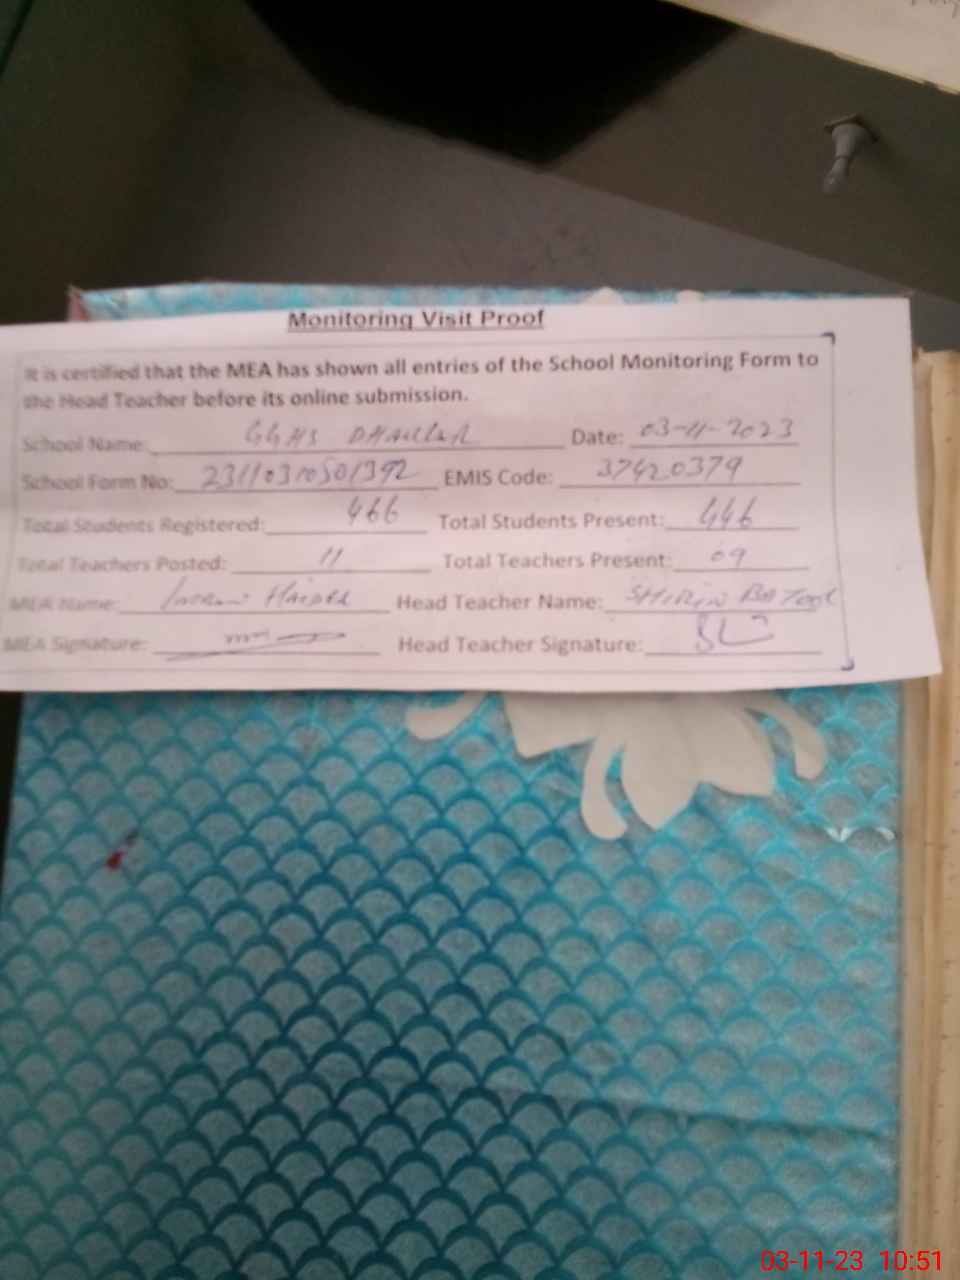 Monitoring Visit Proof
It is certified that the MEA has shown all entries of the School Monitoring Form to
the Head Teacher before its online submission.
School Name: GGHS Date: 03-11-2023
School Form No: 23110310501392 EMIS Code: 37420379
Total Students Registered: 466 Total Students Present: 446
Total Teachers Posted: 11 Total Teachers Present: 09
MEA Name: Haider Head Teacher Name: SHIRIN BATOOL
MEA Signature: Head Teacher Signature:
03-11-23 10:51